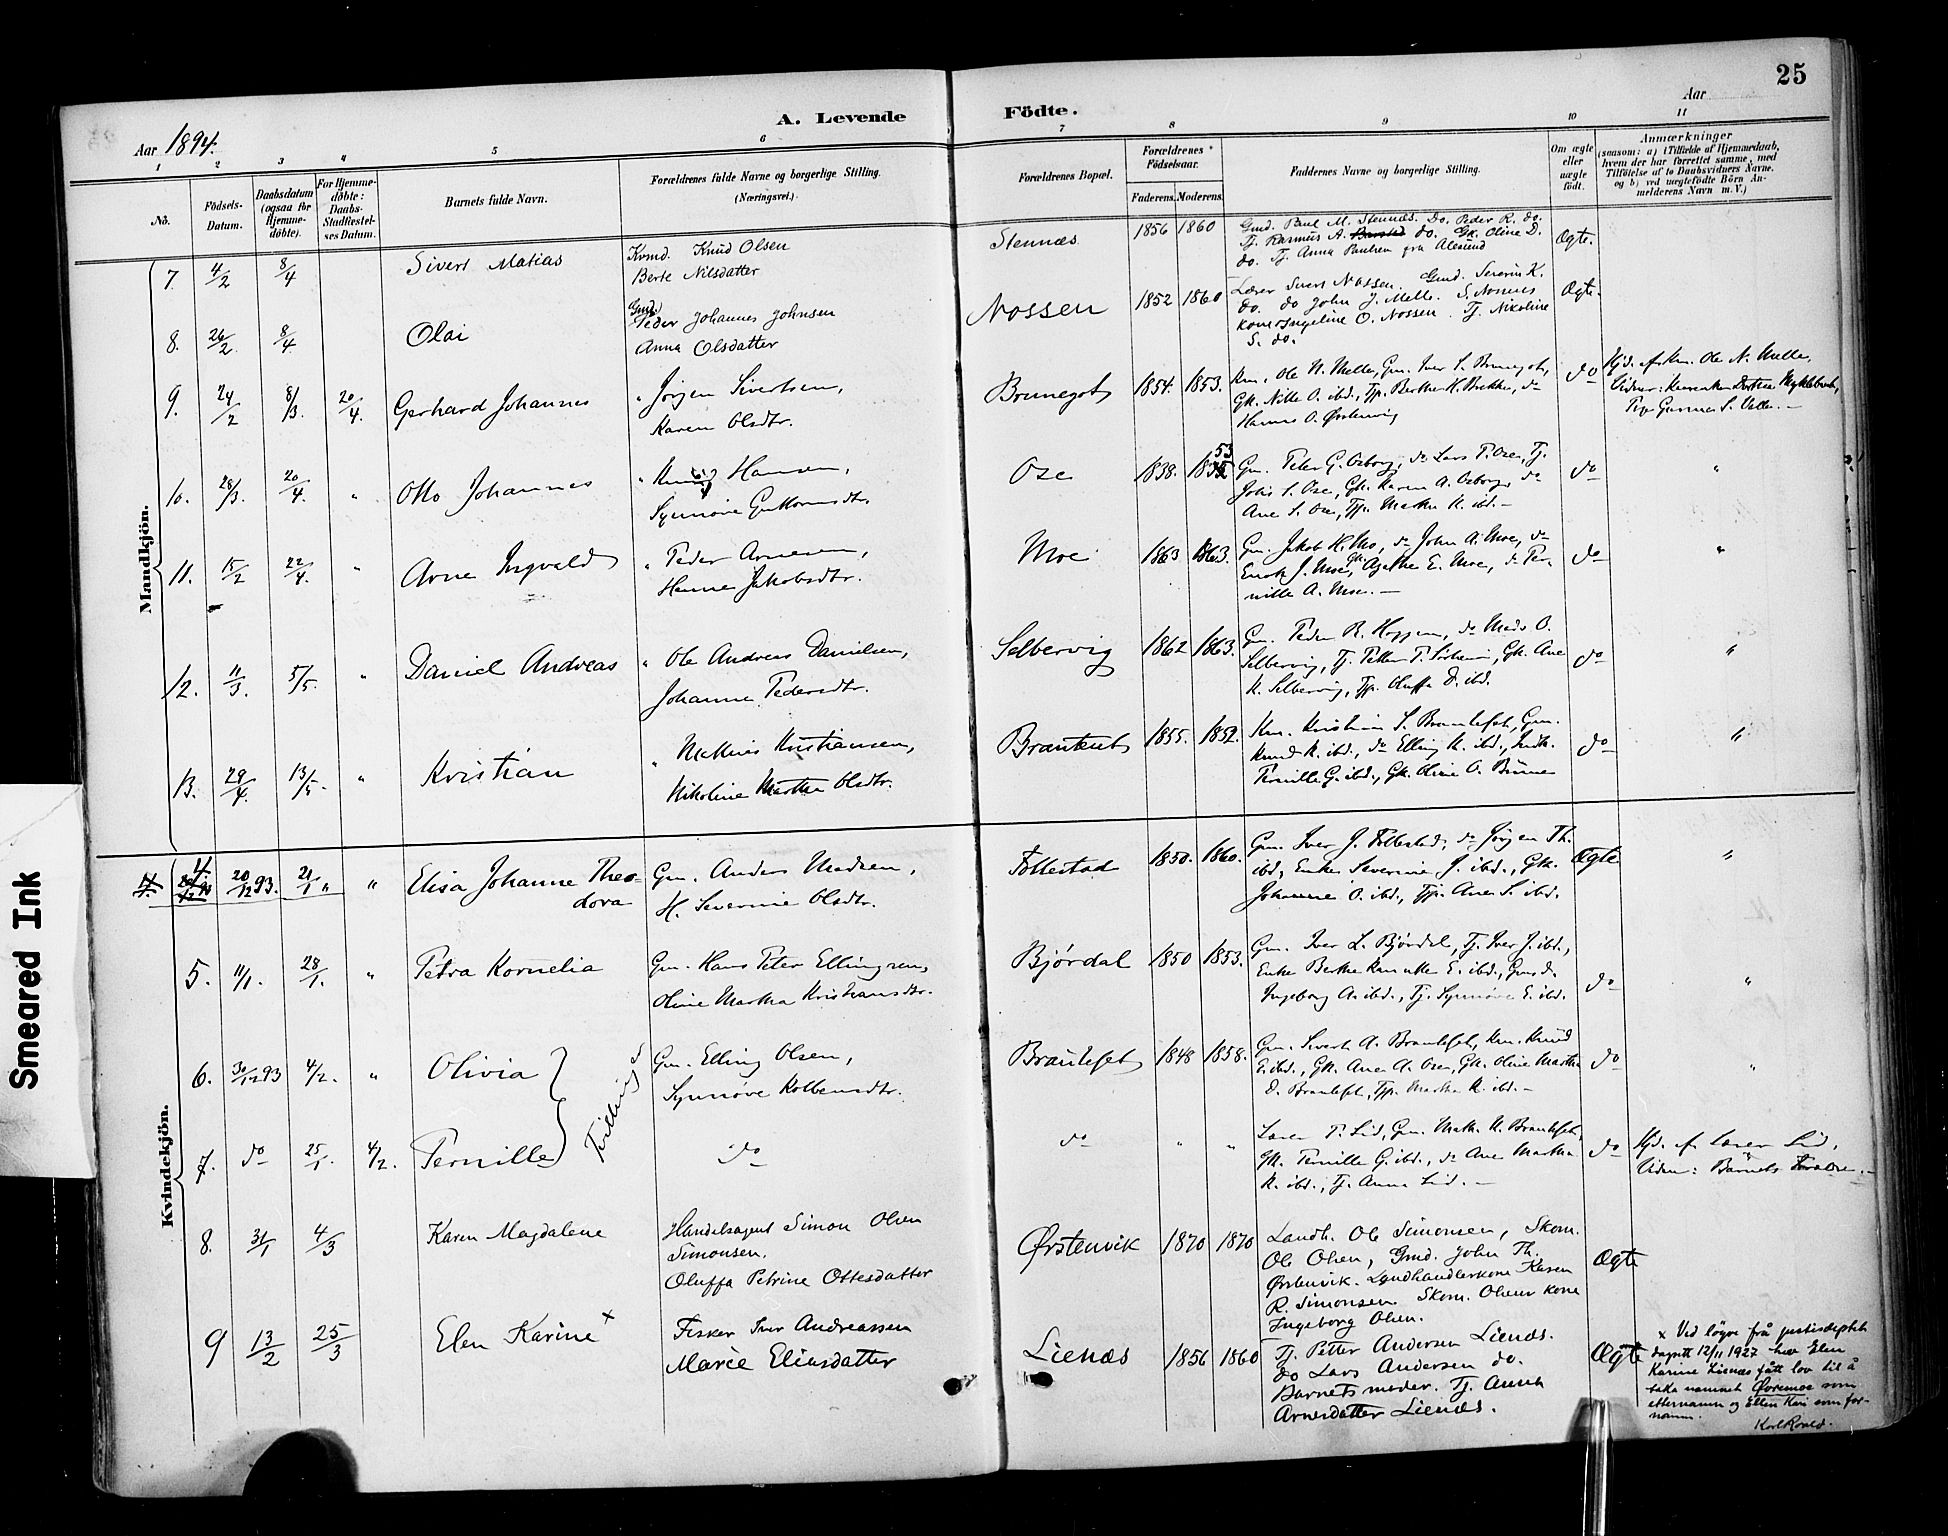 25
A. Levende Födte.
Aar 1894.
Aar
1 2 3 4 5 6 7 8 9 10 11
No.
Födsels-Datum.
Daabsdatum (ogsaa for Hjemme-döbte).
For Hjemme-döbte: Daabs-Stadfæstel-ses Datum.
Barnets fulde Navn.
Forældrenes fulde Navne og borgerlige Stilling.
(Næringsvei.)
Forældrenes Bopæl.
Forældrenes Födselsaar.
Faderens. Moderens.
Faddernes Navne og borgerlige Stilling.
Om ægte eller uægte födt.
Anmærkninger
(saasom: a) i Tilfælde af Hjemmedaab, hvem der har forrettet samme, med Tilföielse af to Daabsvidners Navne, og b) ved uægtefödte Börn An-melderens Navn m. V.)
Mandkjön.
7. 4/2 8/4 Sivert Matias
Kvmd. Knud Olsen
Berte Nilsdatter
Stennæs 1856 1860
Gmd. Paul M. Stennæs. Do. Peder K. do.
Tj. Rasmus A. do. Gk. Oline D.
do. Tj. Anna Paulsen fra Alesund
Ægte.
8. 26/2 8/4 Olai
Gmd. Peder Johannes Johnsen
Anna Olsdatter
Nossen 1852 1860
Lærer Sivert Nossen. Gmd. Severin K.
do. do John J. Melle. S. Nossens
kone Ingeline O. Nossen. Tj. Nikoline
S. do.
Ægte.
9. 24/2 8/3. 20/4. Gerhard Johannes
" Jörgen Sivertsen,
Karen Olsdtr.
Brunegot 1854. 1853.
Km. Ole N. Melle, Gm. Iver S. Brunegot,
Gk. Nille O. ibd., Tjp. Berthe K. Brekke, do
Hanna O. Ørstenvig
do
Hjd. af Km. Ole N. Melle,
Vidner: Dortea Myklebust,
Tjp. Gurine S. Velle. —
10. 28/3. 20/4. " Otto Johannes
" Knud Hansen,
Synnøve Guttormsdtr.
Ose 1838. 1853
Gm. Peter G. Osborg, do Lars P. Ose, Tj.
Johs S. Ose, Gk. Karen A. Osborg, do
Ane S. Ose, Tjp. Marthe K. ibd. —
do "
11. 15/2 22/4. " Arne Ingvald
" Peder Arnesen,
Hanne Jakobsdtr.
Moe 1863 1863.
Gm. Jakob K. Mo, do John A. Moe, do
Enok J. Moe, Gk. Agathe E. Moe, do Per-
nille A. Moe. —
do "
12. 11/3. 5/5. " Daniel Andreas
" Ole Andreas Danielsen,
Johanne Pedersdtr.
Selbervig 1862 1863.
Gm. Peder R. Hoggen, do Mads O.
Selbervig, Tj. Petter P. Sörheim, Gk. Ane
K. Selbervig, Tjp. Oluffa D. ibd.
do "
13. 29/4. 13/5. " Kristian
" Mathias Kristiansen,
Nikoline Martha Olsdtr.
Brauteset 1855. 1852.
Km. Kristian S. Brauteset, Gm.
Knud K. ibd., do Elling K. ibd., Indk.
Pernille G. ibd., Gk. Oline O. Brune
do "
Kvindekjön.
4. 20/12 93. 21/1 " " Elisa Johanne Theo-
dora
Gm. Anders Madsen,
H. Severine Olsdtr.
Follestad 1850. 1860.
Gm. Iver J. Follestad, do Jörgen Th.
ibd., Enke Severine J. ibd., Gk.
Johanne O. ibd., Tjp. Ane S. ibd.
Ægte "
5. 11/1. 28/1. " Petra Kornelia
Gm. Hans Peter Ellingsen,
Oline Martha Kristiansdtr.
Bjørdal 1850 1853.
Gm. Iver L. Bjørdal, Tj. Iver J. ibd.,
Enke Berthe Karine E. ibd., Gmd.
Ingeborg A. ibd., Tj. Synnøve E. ibd.
do "
6. 30/12 93 4/2. " Olivia
Tvillinger
Gm. Elling Olsen,
Synnøve Kolbensdtr.
Brauteset 1848 1858.
Gm. Sivert A. Brauteset, Km. Knud
E. ibd., Gk. Ane A. Ose, Gk. Oline Martha
D. Brauteset, Tjp. Marthe K. ibd. —
do "
7. do 25/1. 4/2. Pernille
do
do " "
Lærer P. Lid, Gm. Math. K. Brauteset,
Gk. Pernille G. ibd., do Ane Martha
K. ibd., Tj. Anna Lid. —
do
Hjd. af Lærer Lid,
Vidner: Barnets Forældre. —
8. 3/1 4/3 Karen Magdalene
Handelsagent Simon Olsen
Simonsen.
Oluffa Petrine Ottesdatter
Ørstenvik 1870 1870
Landh. Ole Simonsen, Skom.
Ole Olsen, Gmd. John Th.
Ørstenvik. Landhandlerkone Karen
R. Simonsen. Skom. Olsens kone
Ingeborg Olsen.
Ægte
9 13/2 25/3 Elen Karine x
Fisker Iver Andreassen
Marie Eliasdatter
Lienæs 1856 1860
Tj. Petter Andersen Lienæs.
do Lars Andersen do.
Barnets moder. Tj. Anna
Arnesdatter Lienæs.
Ægte
x Ved løyve frå justisdeptet
dagsett 12/11 1927 hev Elen
Karine Lienæs fått lov til å
taka namnet Øvremoe som
etternamn og Ellen Kari som for-
namn.
Karl Rovald.
Smeared Ink